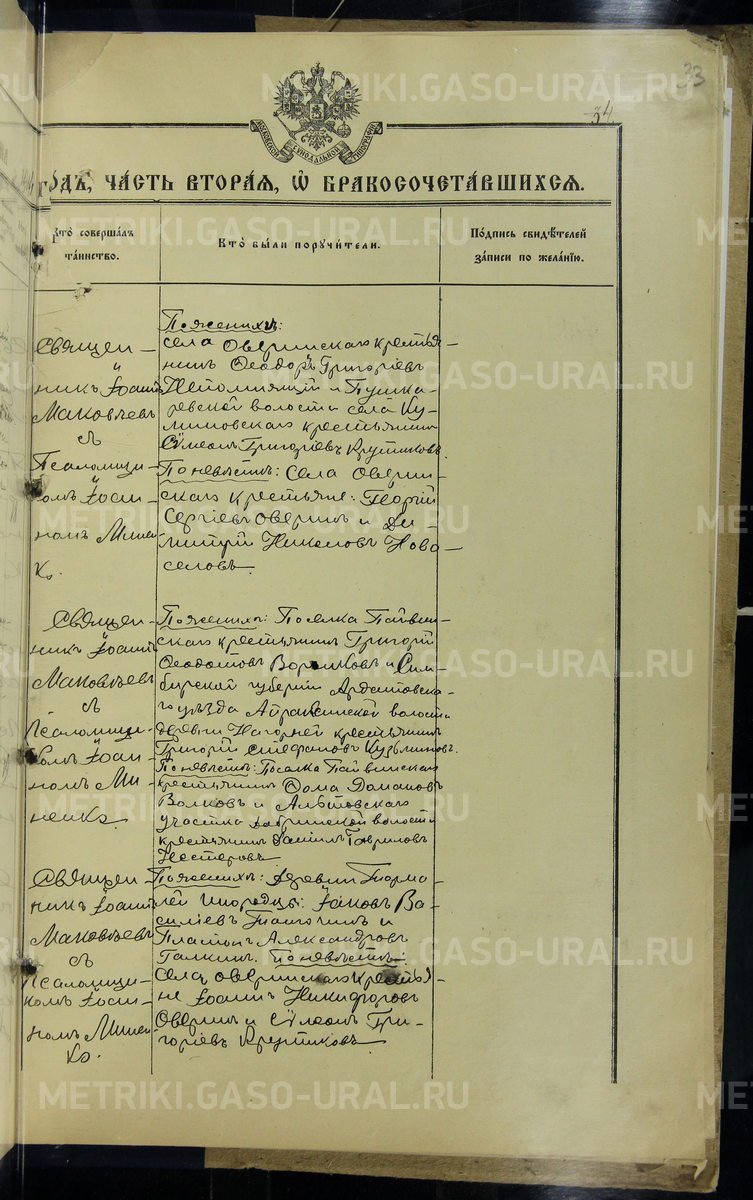 33
34
МОСКОВСКОЙ СѴНОДАЛЬНОЙ ТИПОГРАФІИ
ГОДЪ, ЧАСТЬ ВТОРАЯ, Ѽ БРАКОСОЧЕТАВШИХСЯ.
Кто совершалъ
таинство.
Кто были поручители.
Подпись свидѣтелей
записи по желанію.
Священ-
никъ Іоаннъ
Маковѣевъ
съ
Псаломщи-
комъ Іоан-
номъ Минен
ко.
По женихѣ:
села Оверинскаго крестья-
нинъ Ѳеодоръ Григоріевъ
Непомнящій и Пушка-
ревской волости села Ку-
ликовскаго крестьянинъ
Сѵмеонъ Григоріевъ Крутиковъ.
По невѣстѣ: Села Оверин-
скаго крестьяне: Георгій
Сергіевъ Оверинъ и Ди-
митрій Николовъ Ново-
селовъ.
Священ-
никъ Іоаннъ
Маковѣевъ
съ
Псаломщи-
комъ Іоан-
номъ Ми-
ненко.
По женихѣ: Поселка Пайвин-
скаго крестьянинъ Григорій
Ѳеодотовъ Ворошковъ и Сим-
бирской губерніи Ардатовска-
го уѣзда волости
деревни Нагорней крестьянинъ
Григорій Стефановъ Кузьминовъ.
По невѣстѣ: Поселка Пайвинскаго
крестьянинъ Ѳома
Волковъ и
участка волости
крестьянинъ Даніилъ Гавриловъ
Нестеровъ.
Священ-
никъ Іоаннъ
Маковѣевъ
съ
Псаломщи-
комъ Іоан-
номъ Минен
ко.
По женихѣ: Деревни
инородцы: Іаковъ Ва-
силіевъ и
Платонъ Александровъ
Галкинъ. По невѣстѣ:
Села Оверинскаго крестья-
не Іоаннъ Никифоровъ
Оверинъ и Сѵмеонъ Гри-
горіевъ Крутиковъ
METRIKI.GASO-URAL.RU